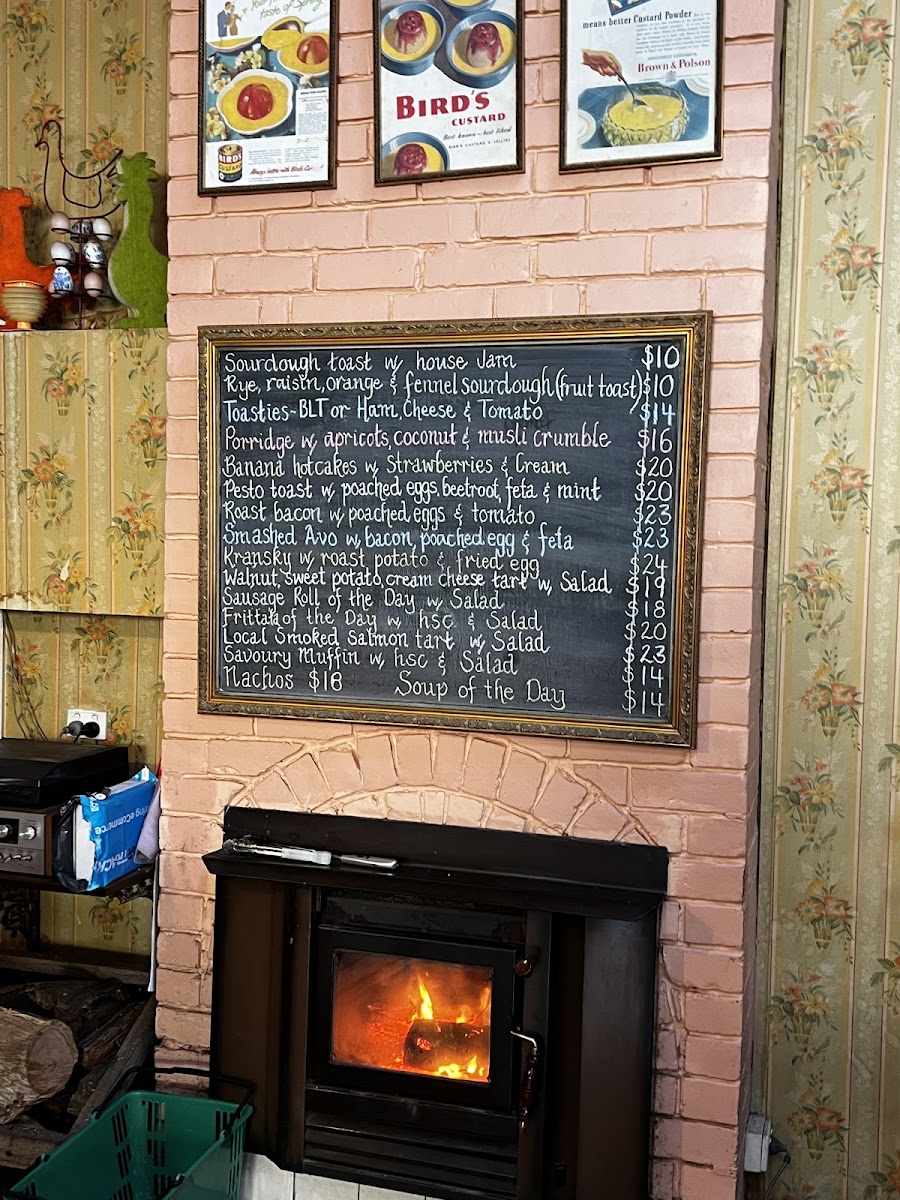 taste of Spring
BIRD'S
Always better with Bird's Custard
BIRD'S
CUSTARD
Best known - best liked
BIRD'S CUSTARD & JELLIES
means better Custard Powder
Brown & Polson
Sourdough toast w/ house Jam $10
Rye, raisin, orange & fennel sourdough (fruit toast) $10
Toasties~BLT or Ham, Cheese & Tomato $14
Porridge w/ apricots, coconut & musli crumble $16
Banana hotcakes w/ Strawberries & Cream $20
Pesto toast w/ poached eggs, beetroot, feta & mint $20
Roast bacon w/ poached eggs & tomato $23
Smashed Avo w/ bacon, poached egg & feta $23
Kransky w/ roast potato & fried egg $24
Walnut, sweet potato, cream cheese tart w/ Salad $19
Sausage Roll of the Day w/ Salad $18
Frittata of the Day w/ hsc & Salad $20
Local Smoked Salmon tart w/ Salad $23
Savoury Muffin w/ hsc & Salad $14
Nachos $18 Soup of the Day $14